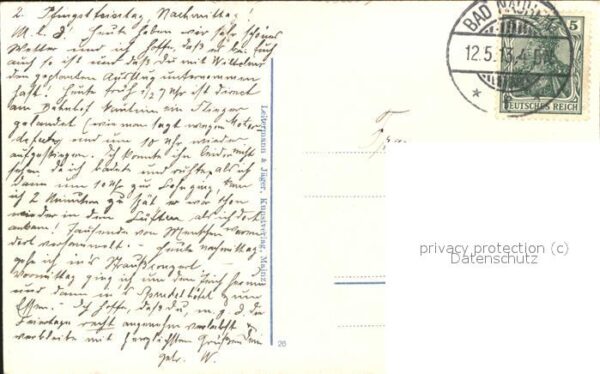 2. Pfingstfeiertag, Nachmittag!
M. l. E! Heute haben wir sehr schönes
Wetter und ich hoffe, daß es bei Euch
auch so ist und daß du mit Wilhelm
den geplanten Ausflug unternommen
hast! Heute früh ½ 7 Uhr ist direct
am Bahnhof ein Flieger
gelandet (wie man sagt wegen Motor-
defekt) und um 10 Uhr wieder
aufgestiegen. Ich konnte ihn leider nicht
sehen, da ich badete und ruhte, als ich
dann um 10 Uhr zur ging, kam
ich 2 Minuten zu spät er war schon
wieder in den Lüften als ich dort
ankam! Tausende von Menschen waren
dort versammelt. – Heute nachmittag
gehe ich in's Straußconzert.
Vormittag ging ich um den Teich herum
und dann in's Sprudelhotel zum
Essen. – Ich hoffe, daß du, m. g. E. die
Feiertage recht angenehm verlebst &
verbleibe mit herzlichsten Grüßen Dein
getr. W.
Leitermann & Jäger, Kunstverlag, Mainz
26
BAD NAUHEIM
12.5.13. 4-5N.
5
DEUTSCHES REICH
privacy protection (c)
Datenschutz